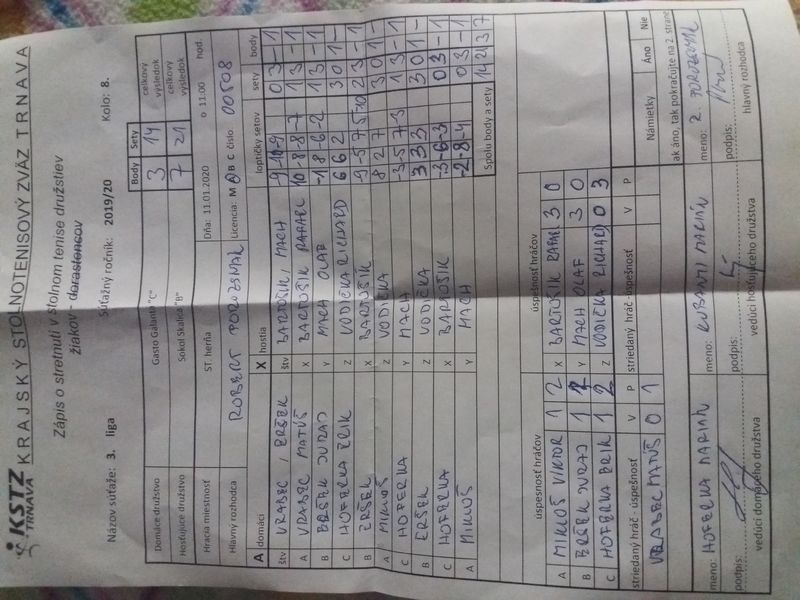 KSTZ TRNAVA KRAJSKÝ STOLNOTENISOVÝ ZVÄZ TRNAVA
Zápis o stretnutí v stolnom tenise družstiev
žiakov - dorastencov
Názov súťaže: 3. liga Súťažný ročník: 2019/20 Kolo: 8.
Body Sety
Domáce družstvo Gasto Galanta "C" 3 14 celkový výsledok
Hosťujúce družstvo Sokol Skalica "B" 7 21 celkový výsledok
Hracia miestnosť ST. herňa Dňa: 11.01.2020 o 11.00 hod.
Hlavný rozhodca ROBERT POROZSMAK Licencia: M A B C číslo 00508
A domáci X hostia loptičky setov sety body
štv VRABEC, ERŠEK štv BARTOŠIK, MACH -9 -10 -9 0 3 - 1
A VRABEC MATÚŠ X BARTOŠIK RAFAEL 10 -8 -8 -7 1 3 - 1
B ERŠEK JURAJ Y MACH OLAF -1 8 -6 -2 1 3 - 1
C HOFERKA ERIK Z VODIČKA RICHARD 6 6 2 3 0 1 -
B ERŠEK X BARTOŠIK 2 3 - 1
A MIKLOŠ Z VODIČKA 8 2 7 3 0 1 -
C HOFERKA Y MACH -3 -5 7 -3 1 3 - 1
B ERŠEK Z VODIČKA 3 3 3 3 0 1 -
C HOFERKA X BARTOŠIK -3 -6 -3 0 3 - 1
A MIKLOŠ Y MACH -2 -8 -4 0 3 - 1
Spolu body a sety 14 21 3 7
úspesnosť hráčov úspešnosť hráčov
A MIKLOŠ VIKTOR 1 2 X BARTOŠIK RAFAEL 3 0
B ERŠEK JURAJ 1 2 Y MACH OLAF 3 0
C HOFERKA ERIK 1 2 Z VODIČKA RICHARD 0 3
striedaný hráč - úspešnosť V P striedaný hráč - úspešnosť V P
VRABEC MATÚŠ 0 1
Námietky Áno Nie
ak áno, tak pokračujte na 2.strane
meno: HOFERKA MARIAN meno: MARIÁN meno:
podpis: podpis: podpis:
vedúci domáceho družstva vedúci hosťujúceho družstva hlavný rozhodca